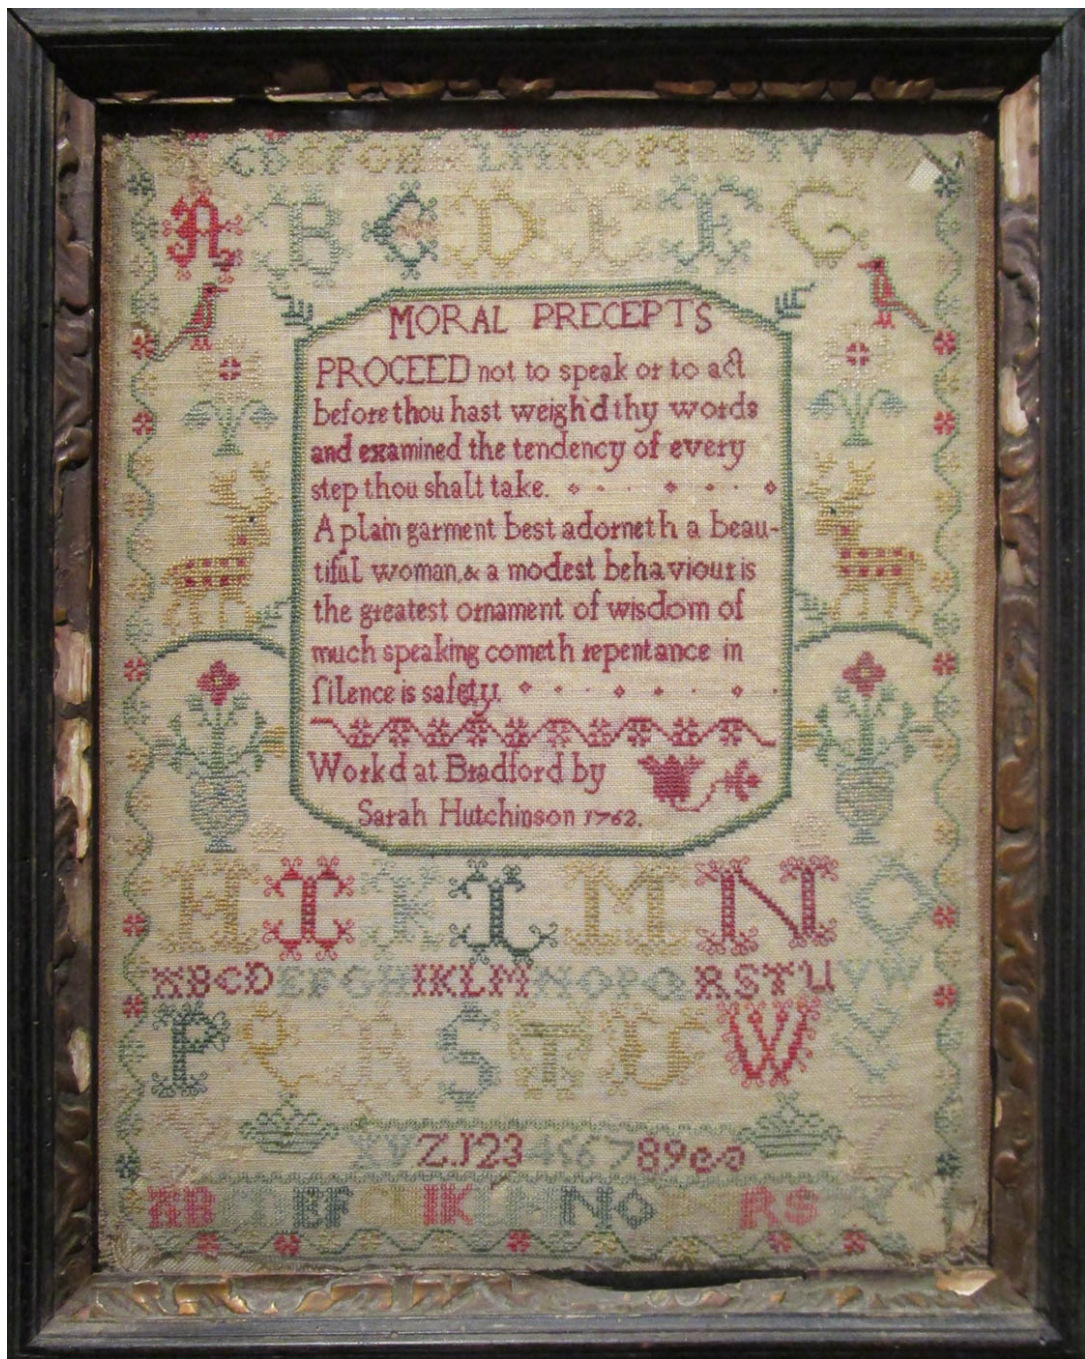 C D E F G H L M N O P
A B C D E F G
MORAL PRECEPTS
PROCEED not to speak or to act
before thou hast weigh'd thy words
and examined the tendency of every
step thou shalt take.
A plain garment best adorneth a beau-
tiful woman, & a modest behaviour is
the greatest ornament of wisdom of
much speaking cometh repentance in
ſilence is safety.
Workd at Bradford by
Sarah Hutchinson 1762.
H I K L M N O
A B C D E F G H I K L M N O P Q R S T U V W
P Q R S T U W Y
Z. 1 2 3 4 5 6 7 8 9
A B E F I K L N O R S